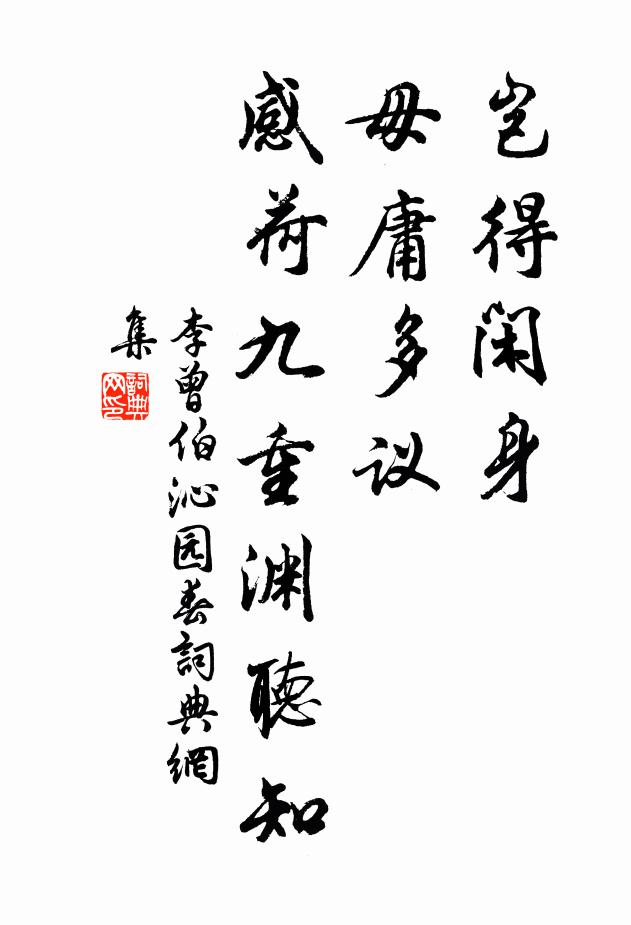 岂得闲身
毋庸多议
感荷九重渊聽知
李曾伯沁园春詞典網
集
詞典
网印